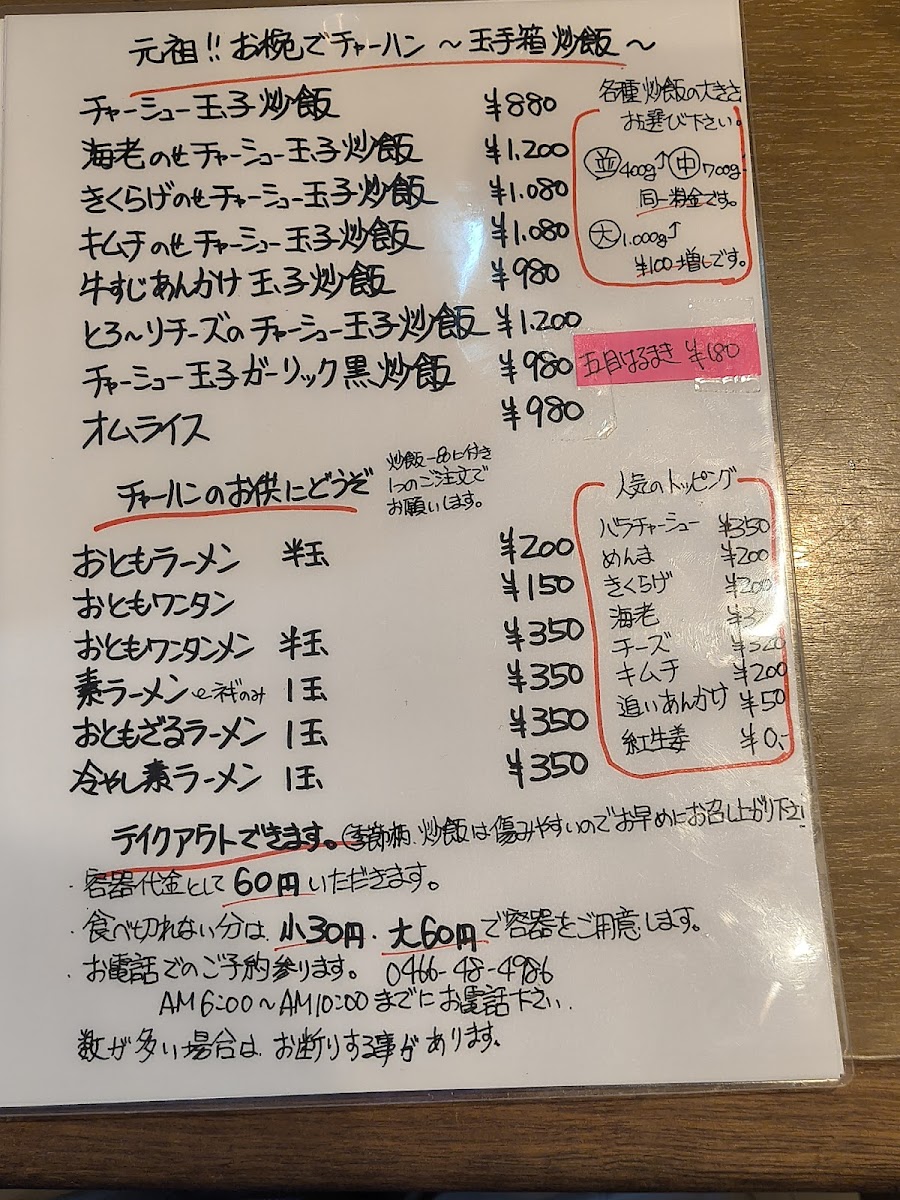 元祖!! お椀でチャーハン ～玉手箱炒飯～
チャーシュー玉子炒飯 ¥880
海老のせチャーシュー玉子炒飯 ¥1.200
きくらげのせチャーシュー玉子炒飯 ¥1.080
キムチのせチャーシュー玉子炒飯 ¥1.080
牛すじあんかけ玉子炒飯 ¥980
とろ～りチーズのチャーシュー玉子炒飯 ¥1.200
チャーシュー玉子ガーリック黒炒飯 ¥980
オムライス ¥980
各種炒飯の大きさ
お選び下さい。
並400g↑中700g
同一料金です。
大1.000g↑
¥100増しです。
五目はるまき ¥180
チャーハンのお供にどうぞ
炒飯一品に付き
1つのご注文で
お願いします。
おともラーメン 半玉 ¥200
おともワンタン ¥150
おともワンタンメン 半玉 ¥350
素ラーメン ネギのみ 1玉 ¥350
おともざるラーメン 1玉 ¥350
冷やし素ラーメン 1玉 ¥350
人気のトッピング
バラチャーシュー ¥350
めんま ¥200
きくらげ ¥200
海老
チーズ ¥320
キムチ ¥200
追いあんかけ ¥50
紅生姜 ¥0.-
テイクアウトできます。季節柄、炒飯は傷みやすいのでお早めにお召し上がり下さい
・容器代金として60円いただきます。
・食べ切れない分は、小30円、大60円で容器をご用意します。
・お電話でのご予約参ります。 0466-48-4986
AM6:00～AM10:00までにお電話下さい.
数が多い場合は、お断りする事があります。